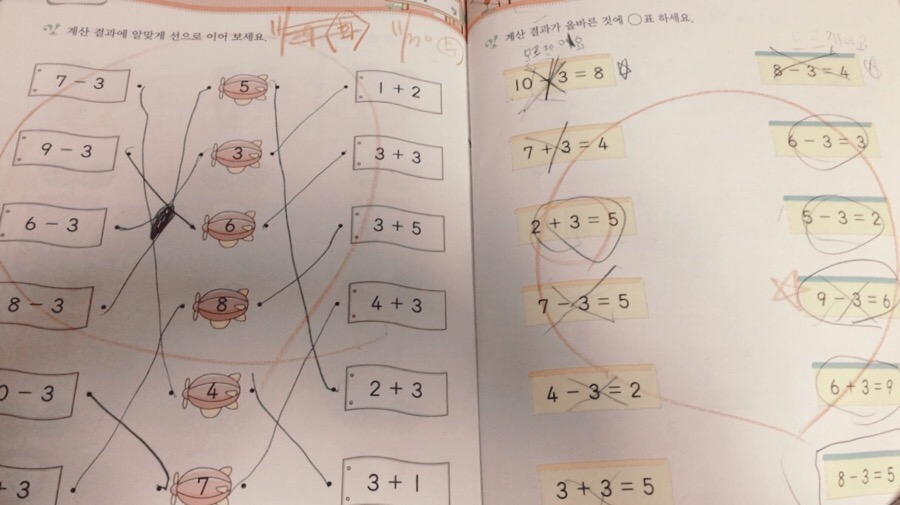 계산 결과에 알맞게 선으로 이어 보세요.
11/
(화)
11/30
7 − 3
5
1 + 2
9 − 3
3
3 + 3
6 − 3
6
3 + 5
8 − 3
8
4 + 3
0 − 3
4
2 + 3
+ 3
7
3 + 1
계산 결과가 옳바른 것에 ○표 하세요.
10 3 = 8
8 − 3 = 4
7 + 3 = 4
6 − 3 = 3
2 + 3 = 5
5 − 3 = 2
7 − 3 = 5
9 − 3 = 6
4 − 3 = 2
6 + 3 = 9
3 + 3 = 5
8 − 3 = 5